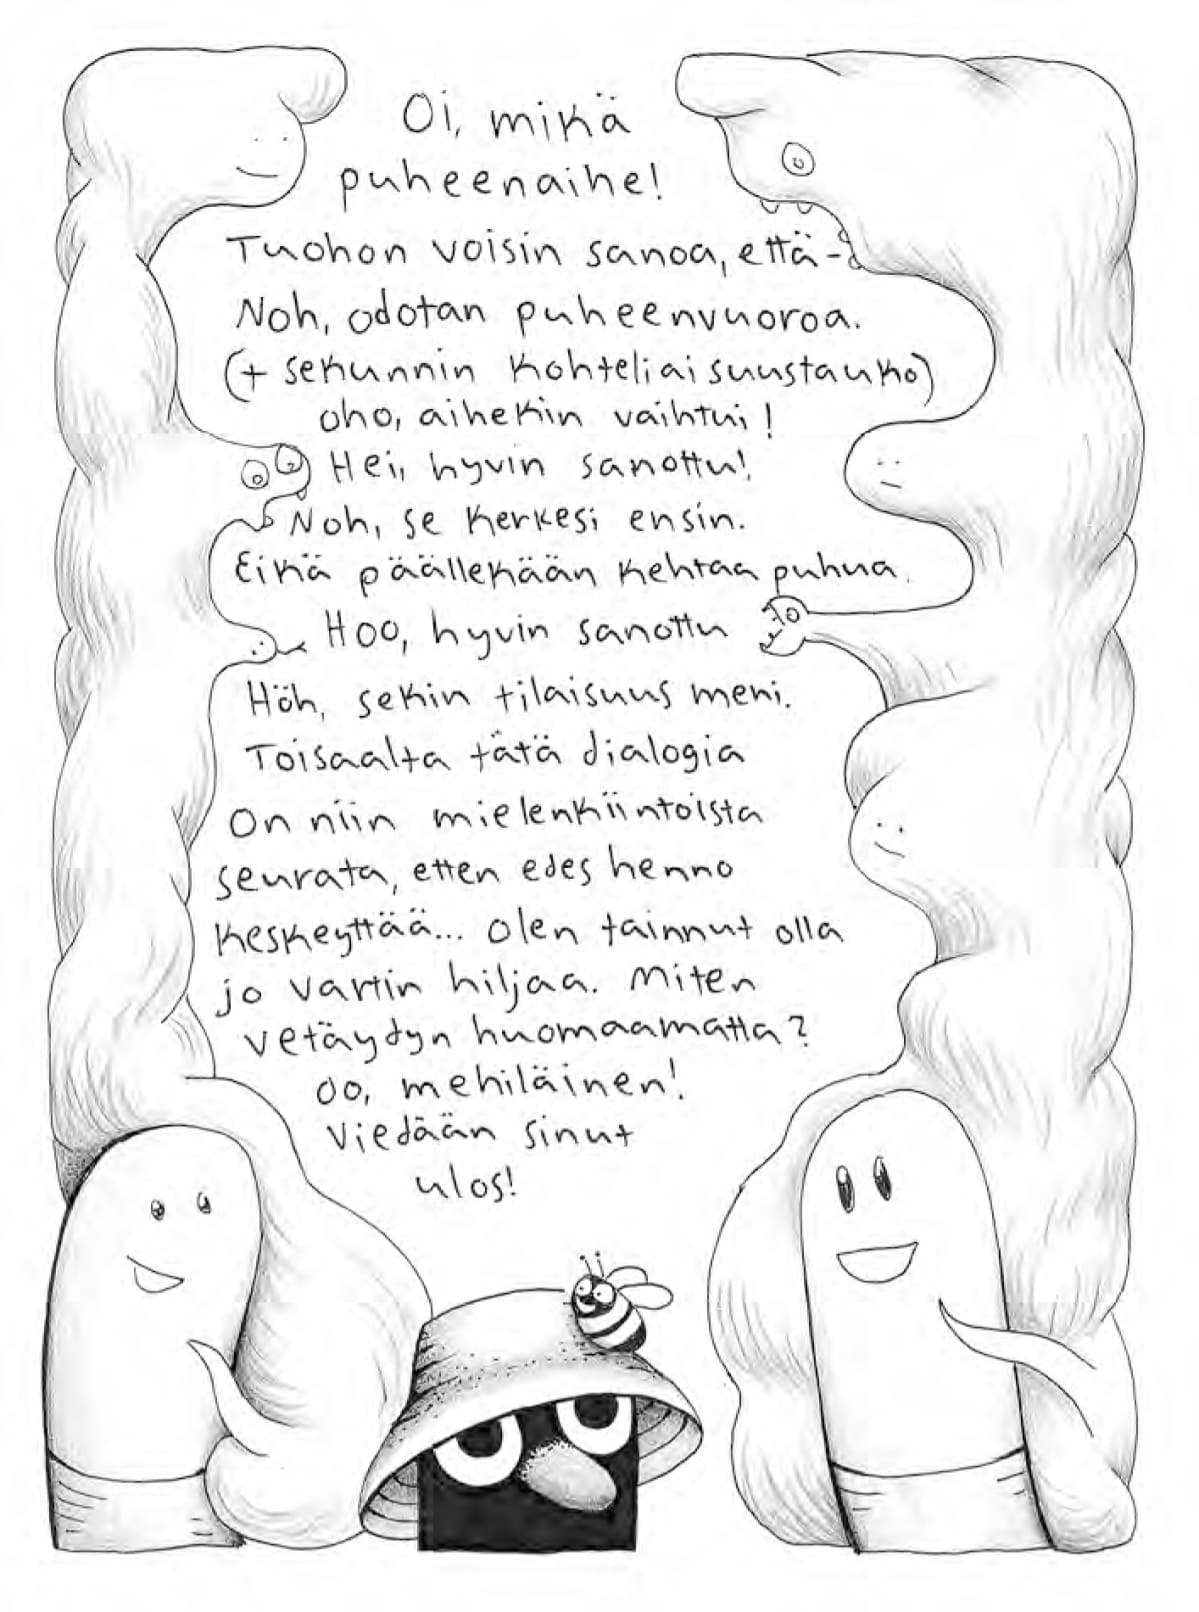 Oi, mikä
puheenaihe!
Tuohon voisin sanoa, että-
Noh, odotan puheenvuoroa.
(+ sekunnin kohteliaisuustauko)
oho, aihekin vaihtui!
Hei, hyvin sanottu!
Noh, se kerkesi ensin.
Eikä päällekään kehtaa puhua.
Hoo, hyvin sanottu
Höh, sekin tilaisuus meni.
Toisaalta tätä dialogia
On niin mielenkiintoista
seurata, etten edes henno
keskeyttää... olen tainnut olla
jo vartin hiljaa. Miten
vetäydyn huomaamatta?
oo, mehiläinen!
Viedään sinut
ulos!